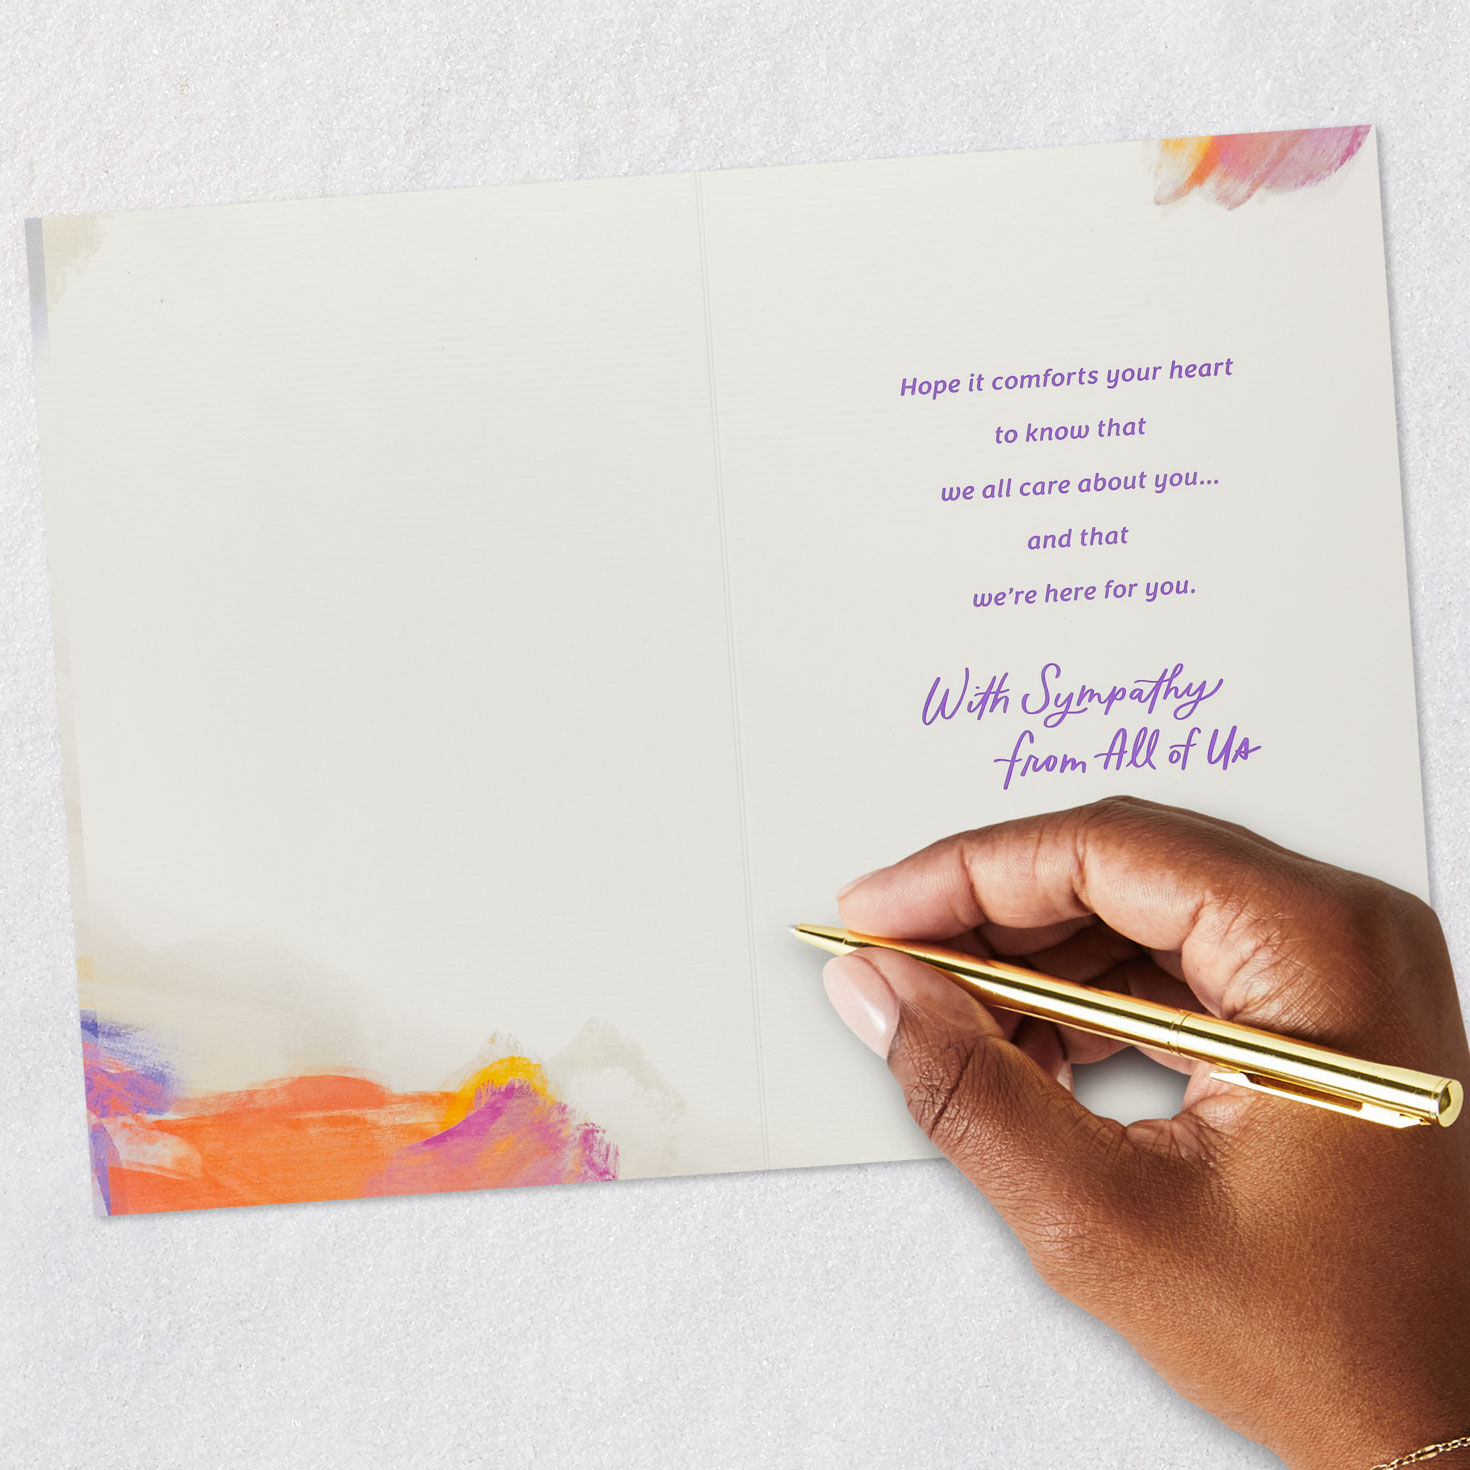 Hope it comforts your heart
to know that
we all care about you...
and that
we're here for you.
With Sympathy
from All of Us